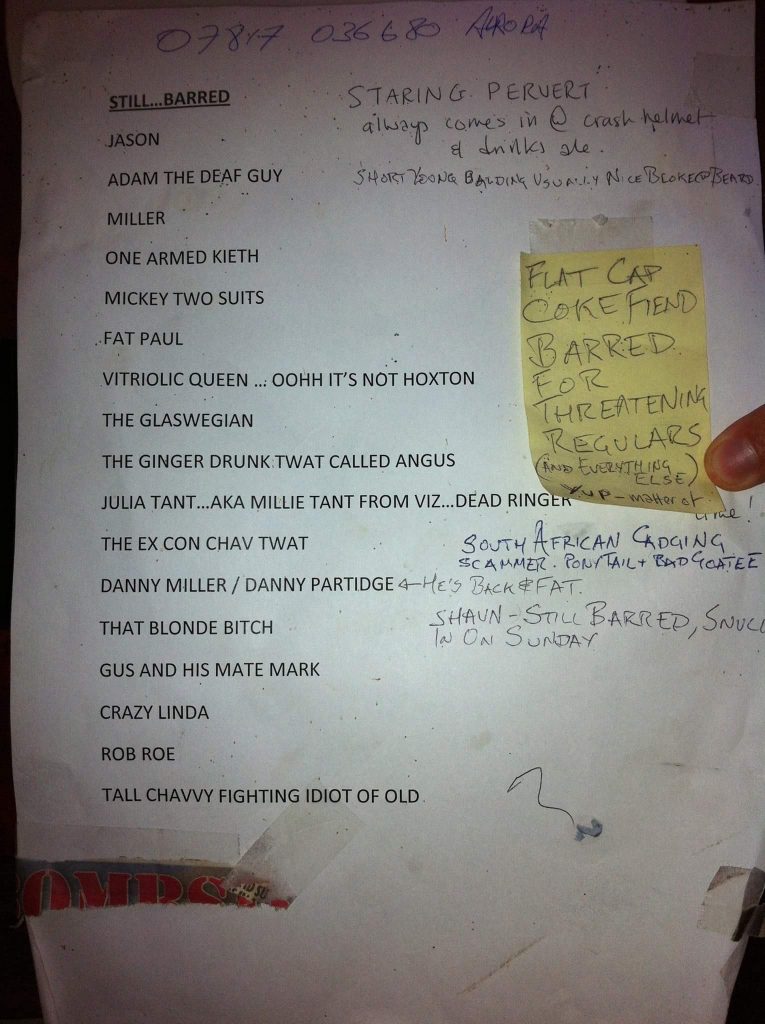 07847 036680 AURORA
STILL...BARRED
STARING PERVERT
always comes in @ crash helmet
& drinks ale.
JASON
ADAM THE DEAF GUY
SHORT YOUNG BALDING USUALLY NICE BLOKE @ BEARD
MILLER
ONE ARMED KIETH
MICKEY TWO SUITS
FAT PAUL
VITRIOLIC QUEEN ... OOHH IT'S NOT HOXTON
THE GLASWEGIAN
THE GINGER DRUNK TWAT CALLED ANGUS
JULIA TANT...AKA MILLIE TANT FROM VIZ...DEAD RINGER
FLAT CAP
COKE FIEND
BARRED
FOR
THREATENING
REGULARS
(AND EVERYTHING
ELSE)
YUP - matter of
time!
THE EX CON CHAV TWAT
SOUTH AFRICAN CADGING
SCAMMER. PONYTAIL + BAD GOATEE
DANNY MILLER / DANNY PARTIDGE ← HE'S BACK & FAT.
THAT BLONDE BITCH
SHAUN - STILL BARRED, SNUC
IN ON SUNDAY
GUS AND HIS MATE MARK
CRAZY LINDA
ROB ROE
TALL CHAVVY FIGHTING IDIOT OF OLD